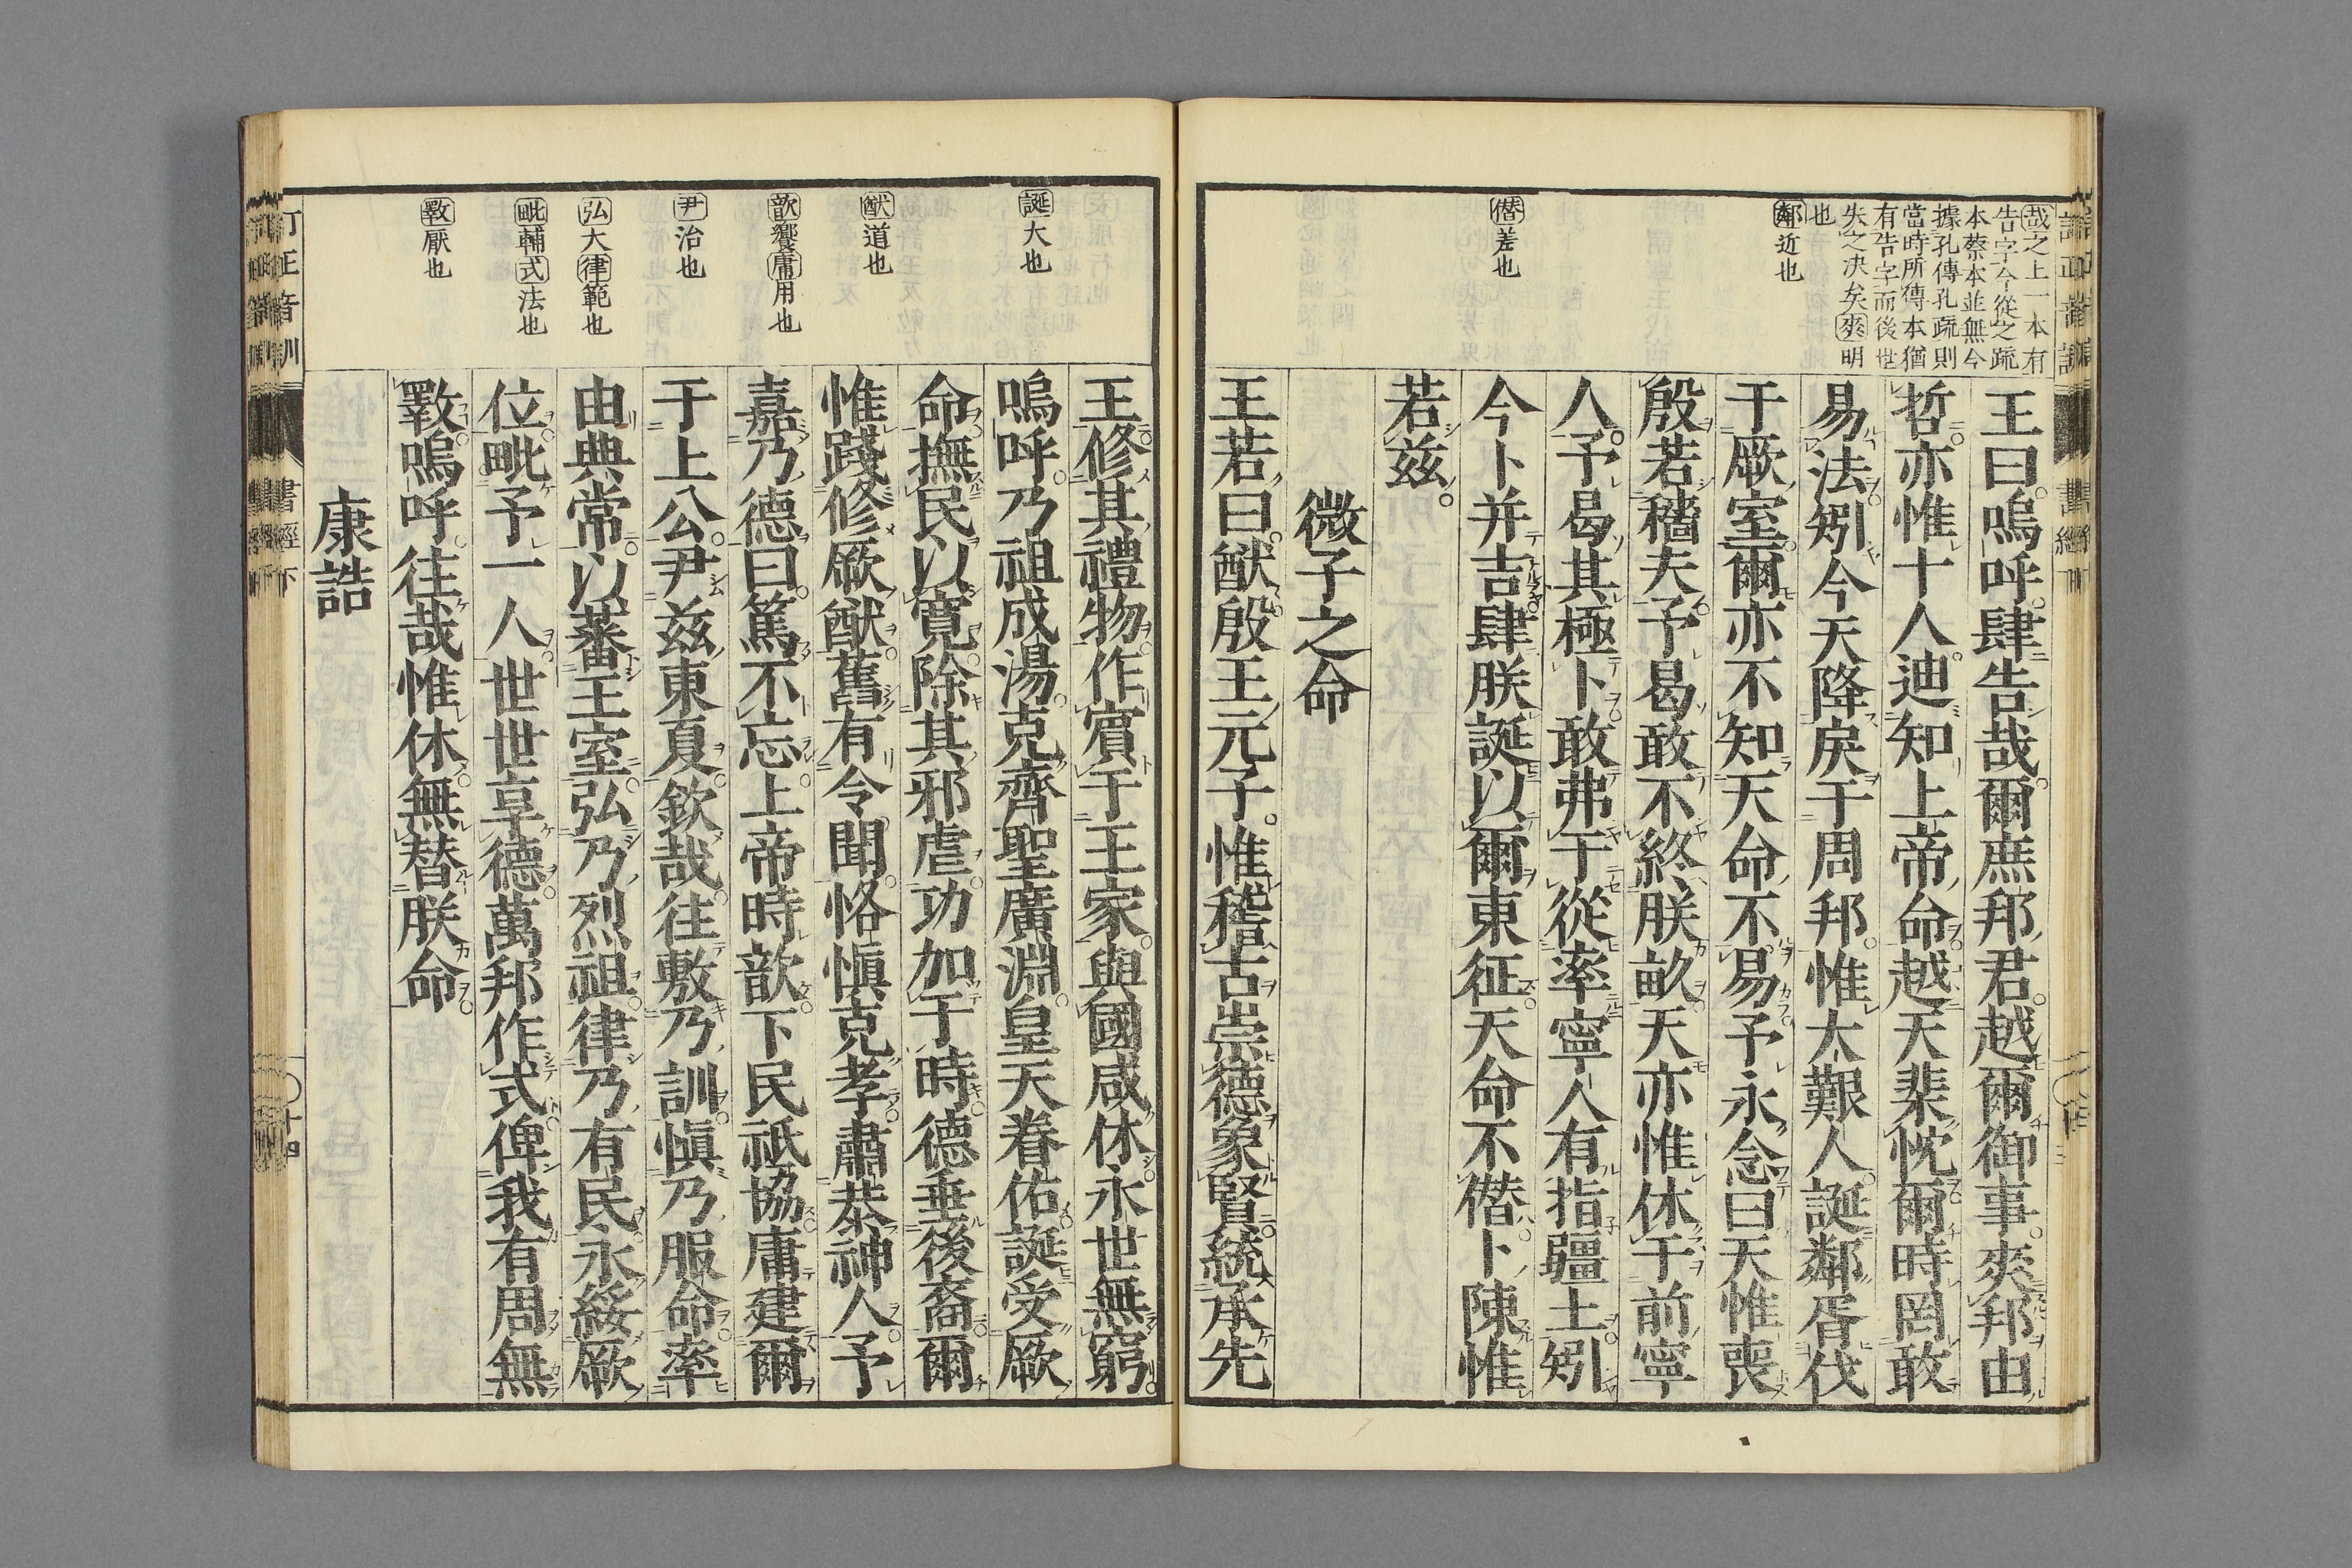 哉之上一本有
告字今從之疏
本蔡本並無今
據孔傳孔疏則
當時所傳本猶
有告字而後世
失之決矣爽明
也
鄰近也
僭差也
王曰嗚呼肆告哉爾庶邦君越爾御事爽邦由
哲亦惟十人迪知上帝命越天棐忱爾時罔敢
易法矧今天降戾于周邦惟大艱人誕鄰胥伐
于厥室爾亦不知天命不易予永念曰天惟喪
殷若穡夫予曷敢不終朕畝天亦惟休于前寧
人予曷其極卜敢弗于從率寧人有指疆土矧
今卜并吉肆朕誕以爾東征天命不僭卜陳惟
若茲
微子之命
王若曰猷殷王元子惟稽古崇德象賢統承先
誕大也
猷道也
歆饗庸用也
尹治也
弘大律範也
毗輔式法也
斁厭也
王修其禮物作賓于王家與國咸休永世無窮
嗚呼乃祖成湯克齊聖廣淵皇天眷佑誕受厥
命撫民以寬除其邪虐功加于時德垂後裔爾
惟踐修厥猷舊有令聞恪愼克孝肅恭神人予
嘉乃德曰篤不忘上帝時歆下民祇協庸建爾
于上公尹茲東夏欽哉往敷乃訓愼乃服命率
由典常以蕃王室弘乃烈祖律乃有民永綏厥
位毗予一人世世享德萬邦作式俾我有周無
斁嗚呼往哉惟休無替朕命
康誥
訂正音訓
書經下
十四